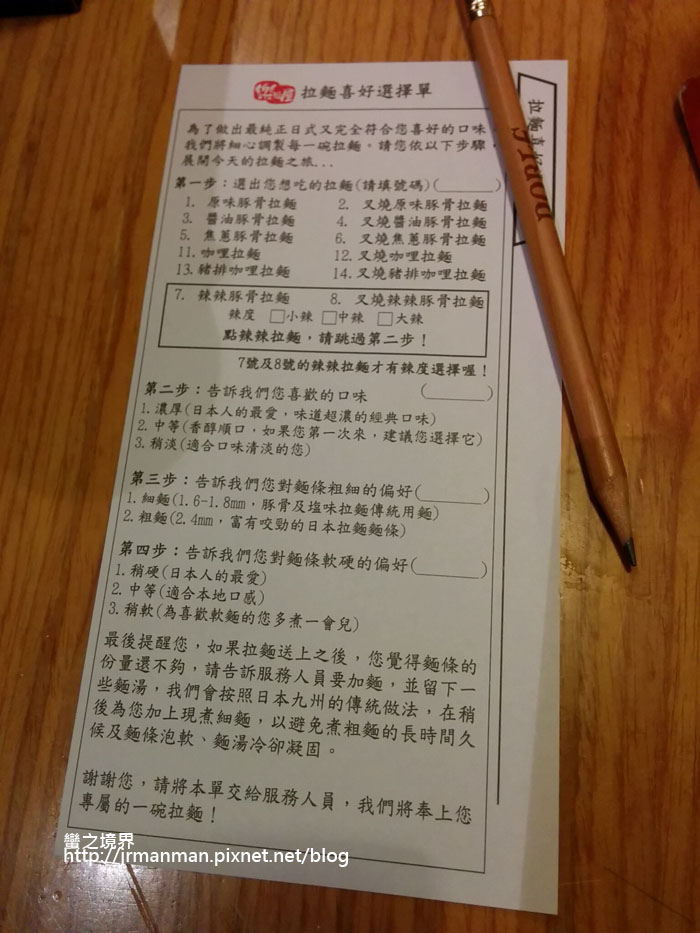 樂麵屋 拉麵喜好選擇單
為了做出最純正日式又完全符合您喜好的口味
我們將細心調製每一碗拉麵。請您依以下步驟，
展開今天的拉麵之旅...
第一步：選出您想吃的拉麵(請填號碼)(______)
1. 原味豚骨拉麵 2. 叉燒原味豚骨拉麵
3. 醬油豚骨拉麵 4. 叉燒醬油豚骨拉麵
5. 焦蔥豚骨拉麵 6. 叉燒焦蔥豚骨拉麵
11.咖哩拉麵 12.叉燒咖哩拉麵
13.豬排咖哩拉麵 14.叉燒豬排咖哩拉麵
7. 辣辣豚骨拉麵 8. 叉燒辣辣豚骨拉麵
辣度 □小辣 □中辣 □大辣
點辣辣拉麵，請跳過第二步！
7號及8號的辣辣拉麵才有辣度選擇喔！
第二步：告訴我們您喜歡的口味 (______)
1.濃厚(日本人的最愛，味道超濃的經典口味)
2.中等(香醇順口，如果您第一次來，建議您選擇它)
3.稍淡(適合口味清淡的您)
第三步：告訴我們您對麵條粗細的偏好(______)
1.細麵(1.6-1.8mm，豚骨及塩味拉麵傳統用麵)
2.粗麵(2.4mm，富有咬勁的日本拉麵麵條)
第四步：告訴我們您對麵條軟硬的偏好(______)
1.稍硬(日本人的最愛)
2.中等(適合本地口感)
3.稍軟(為喜歡軟麵的您多煮一會兒)
最後提醒您，如果拉麵送上之後，您覺得麵條的
份量還不夠，請告訴服務人員要加麵，並留下一
些麵湯，我們會按照日本九州的傳統做法，在稍
後為您加上現煮細麵，以避免煮粗麵的長時間久
候及麵條泡軟、麵湯冷卻凝固。
謝謝您，請將本單交給服務人員，我們將奉上您
專屬的一碗拉麵！
拉麵喜好
蠻之境界
http://jrmanman.pixnet.net/blog